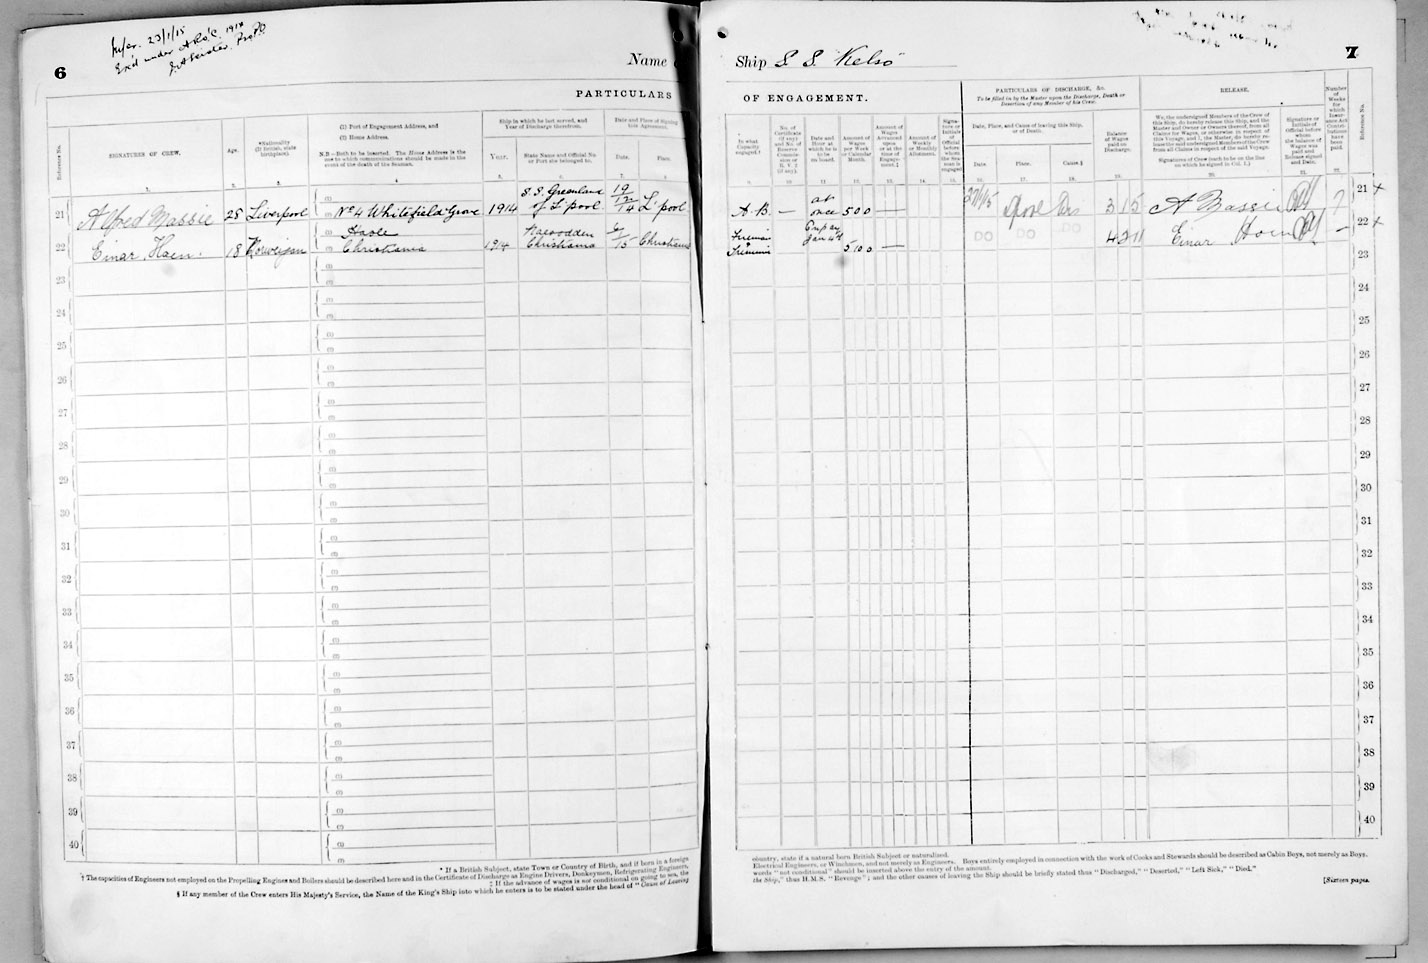 6
23/1/15
Name
PARTICULARS
Reference No.
SIGNATURES OF CREW.
Age.
*Nationality
(If British, state
birthplace).
(1) Port of Engagement Address, and
(2) Home Address.
N.B.—Both to be inserted. The Home Address is the
one to which communications should be made in the
event of the death of the Seaman.
Ship in which he last served, and
Year of Discharge therefrom.
Year.
State Name and Official No.
or Port she belonged to.
Date and Place of Signing
this Agreement.
Date.
Place.
1. 2. 3. 4 5. 6. 7. 8
21 Alfred Massie 28 Liverpool (1) (2) No 4 Whitefield Grove 1914 S.S. Greenland of L'pool 19/12/14 L'pool
22 Einar Hoen. 18 Norweigan (1) (2) Christiania 1914 Christiania Christiania
23
24
25
26
27
28
29
30
31
32
33
34
35
36
37
38
39
40
* If a British Subject, state Town or Country of Birth, and if born in a foreign
† The capacities of Engineers not employed on the Propelling Engines and Boilers should be described here and in the Certificate of Discharge as Engine Drivers, Donkeymen, Refrigerating Engineers,
‡ If the advance of wages is not conditional on going to sea, the
§ If any member of the Crew enters His Majesty's Service, the Name of the King's Ship into which he enters is to be stated under the head of "Cause of Leaving
Ship S. S. Kelso
7
OF ENGAGEMENT.
In what
Capacity
engaged.†
No. of
Certificate
(if any)
and No. of
Reserve
Commis-
sion or
R. V. 2
(if any).
Date and
Hour at
which he is
to be
on board.
Amount of
Wages
per Week
or Calendar
Month.
Amount of
Wages
Advanced
upon
or at the
time of
Engage-
ment.‡
Amount of
Weekly
or Monthly
Allotment.
Signa-
ture or
Initials
of
Official
before
whom
the Sea-
man is
engaged
PARTICULARS OF DISCHARGE, &c.
To be filled in by the Master upon the Discharge, Death or
Desertion of any Member of his Crew.
Date, Place, and Cause of leaving this Ship,
or of Death.
Date.
Place.
Cause.§
Balance
of Wages
paid on
Discharge.
RELEASE.
We, the undersigned Members of the Crew of
this Ship, do hereby release this Ship, and the
Master and Owner or Owners thereof, from all
Claims for Wages, or otherwise in respect of
this Voyage, and I, the Master, do hereby re-
lease the said undersigned Members of the Crew
from all Claims in respect of the said Voyage.
Signatures of Crew (each to be on the line
on which he signed in Col. 1.)
Signature or
Initials of
Official before
whom
the balance of
Wages was
paid and
Release signed
and Date.
Number
of
Weeks
for
which
Insur-
ance Act
Contri-
butions
have
been
paid.
Reference No.
A. B. — at once 5 0 0 — 3 1 5 A Massie 21 +
Fireman & Trimmer 5 10 0 — DO DO DO 4 2 11 Einar Hoen — 22 +
23
24
25
26
27
28
29
30
31
32
33
34
35
36
37
38
39
40
country, state if a natural born British Subject or naturalized.
Electrical Engineers, or Winchmen, and not merely as Engineers. Boys entirely employed in connection with the work of Cooks and Stewards should be described as Cabin Boys, not merely as Boys.
words "not conditional" should be inserted above the entry of the amount.
the Ship," thus H.M.S. "Revenge"; and the other causes of leaving the Ship should be briefly stated thus "Discharged," "Deserted," "Left Sick," "Died."
[Sixteen pages.